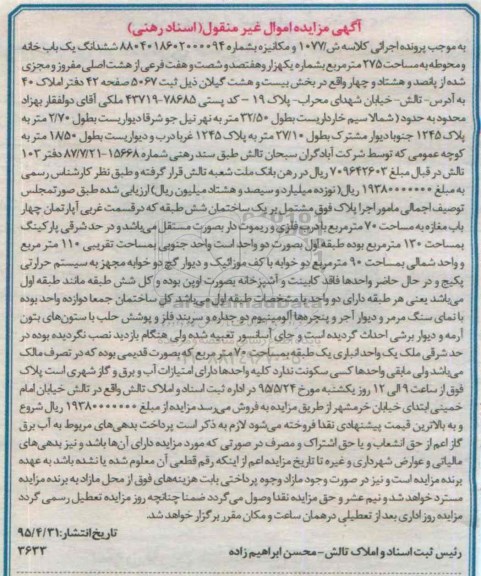 آگهی مزایده اموال غیر منقول(اسناد رهنی)
به موجب پرونده اجرائی کلاسه ش/۱۰۷۷ و مکانیزه بشماره ۸۸۰۴۰۱۸۶۰۲۰۰۰۰۹۴ ششدانگ یک باب خانه
و محوطه به مساحت ۲۷۵ مترمربع بشماره یکهزار و هفتصد و شصت و هفت فرعی از هشت اصلی مفروز و مجزی
شده از پانصد و هشتاد و چهار واقع در بخش بیست و هشت گیلان ذیل ثبت ۵۰۶۷ صفحه ۴۲ دفتر املاک ۴۰
به آدرس- تالش- خیابان شهدای محراب- پلاک ۱۹ - کد پستی ۷۸۶۸۵-۴۳۷۱۹ ملکی آقای دولفقار بهزاد
محدود به حدود ( شمالا سیم خارداریست بطول ۳۲/۵۰ متر به نهر نیل جو شرقا دیواریست بطول ۲/۷۰ متر به
پلاک ۱۲۴۵ جنوبا دیوار مشترک بطول ۲۷/۱۰ متر به پلاک ۱۲۴۵ غربا درب و دیواریست بطول ۱۸/۵۰ متر به
کوچه عمومی که توسط شرکت آبادگران سبحان تالش طبق سند رهنی شماره ۱۵۶۶۸-۸۷/۷/۲۱ دفتر ۱۰۳
تالش در قبال مبلغ ۷۰۹۶۴۲۶۰۳ ریال در رهن بانک ملت شعبه تالش قرار گرفته و طبق نظر کارشناس رسمی
به مبلغ ۱۹۳۸۰۰۰۰۰۰۰ ریال(نوزده میلیارد و سیصد و هشتاد میلیون ریال) ارزیابی شده طبق صورتمجلس
توصیف اجمالی مامور اجرا پلاک فوق مشتمل بر یک ساختمان شش طبقه که در قسمت غربی آپارتمان چهار
باب مغازه به مساحت ۷۰ مترمربع با درب فلزی و ریموت دار بصورت مستقل می باشد و در حد شرقی پارکینگ
بمساحت ۱۳۰ مترمربع بوده طبقه اول بصورت دو واحد است واحد جنوبی بمساحت تقریبی ۱۱۰ متر مربع
و واحد شمالی بمساحت ۹۰ مترمربع دو خوابه با کف موزائیک و دیوار گچ دو خوابه مجهز به سیستم حرارتی
پکیج و در حال حاضر واحدها فاقد کابینت و آشپزخانه بصورت اوپن بوده و کل شش طبقه مانند طبقه اول
می باشد یعنی هر طبقه دارای دو واحد با مشخصات طبقه اول می باشد کل ساختمان جمعا دوازده واحد بوده
با نمای سنگ مرمر و دیوار آجر و پنجره ها آلومینیوم دو جداره و سربند فلز و پوشش حلب با ستون های بتون
آرمه و دیوار برشی احداث گردیده است و جای آسانسور تعبیه شده ولی هنگام بازدید نصب نگردیده بوده در
حد شرقی ملک یک واحد انباری یک طبقه بمساحت ۷۰ متر مربع که بصورت قدیمی بوده که در تصرف مالک
می باشد ولی مابقی واحدها کسی سکونت ندارد کلیه واحدها دارای امتیازات آب و برق و گاز شهری است پلاک
فوق از ساعت ۹ الی ۱۲ روز یکشنبه مورخ ۹۵/۵/۲۴ در اداره ثبت اسناد و املاک تالش واقع در تالش خیابان امام
خمینی ابتدای خیابان خرمشهر از طریق مزایده به فروش می رسد مزایده از مبلغ ۱۹۳۸۰۰۰۰۰۰۰ ریال شروع
و به بالاترین قیمت پیشنهادی نقدا فروخته می شود لازم به ذکر است پرداخت بدهی های مربوط به آب برق
گاز اعم از حق انشعاب و یا حق اشتراک و مصرف در صورتی که مورد مزایده دارای آن ها باشد و نیز بدهی های
مالیاتی و عوارض شهرداری و غیره تا تاریخ مزایده اعم از اینکه رقم قطعی آن معلوم شده یا نشده باشد به عهده
برنده مزایده است و نیز در صورت وجود مازاد وجوه پرداختی بابت هزینه های فوق از محل مازاد به برنده مزایده
مسترد خواهد شد و نیم عشر و حق مزایده نقدا وصول می گردد ضمنا چنانچه روز مزایده تعطیل رسمی گردد
مزایده روز اداری بعد از تعطیلی در همان ساعت و مکان مقرر برگزار خواهد شد.
تاریخ انتشار: ۹۵/۴/۳۱
رئیس ثبت اسناد و املاک تالش- محسن ابراهیم زاده
۳۶۳۳